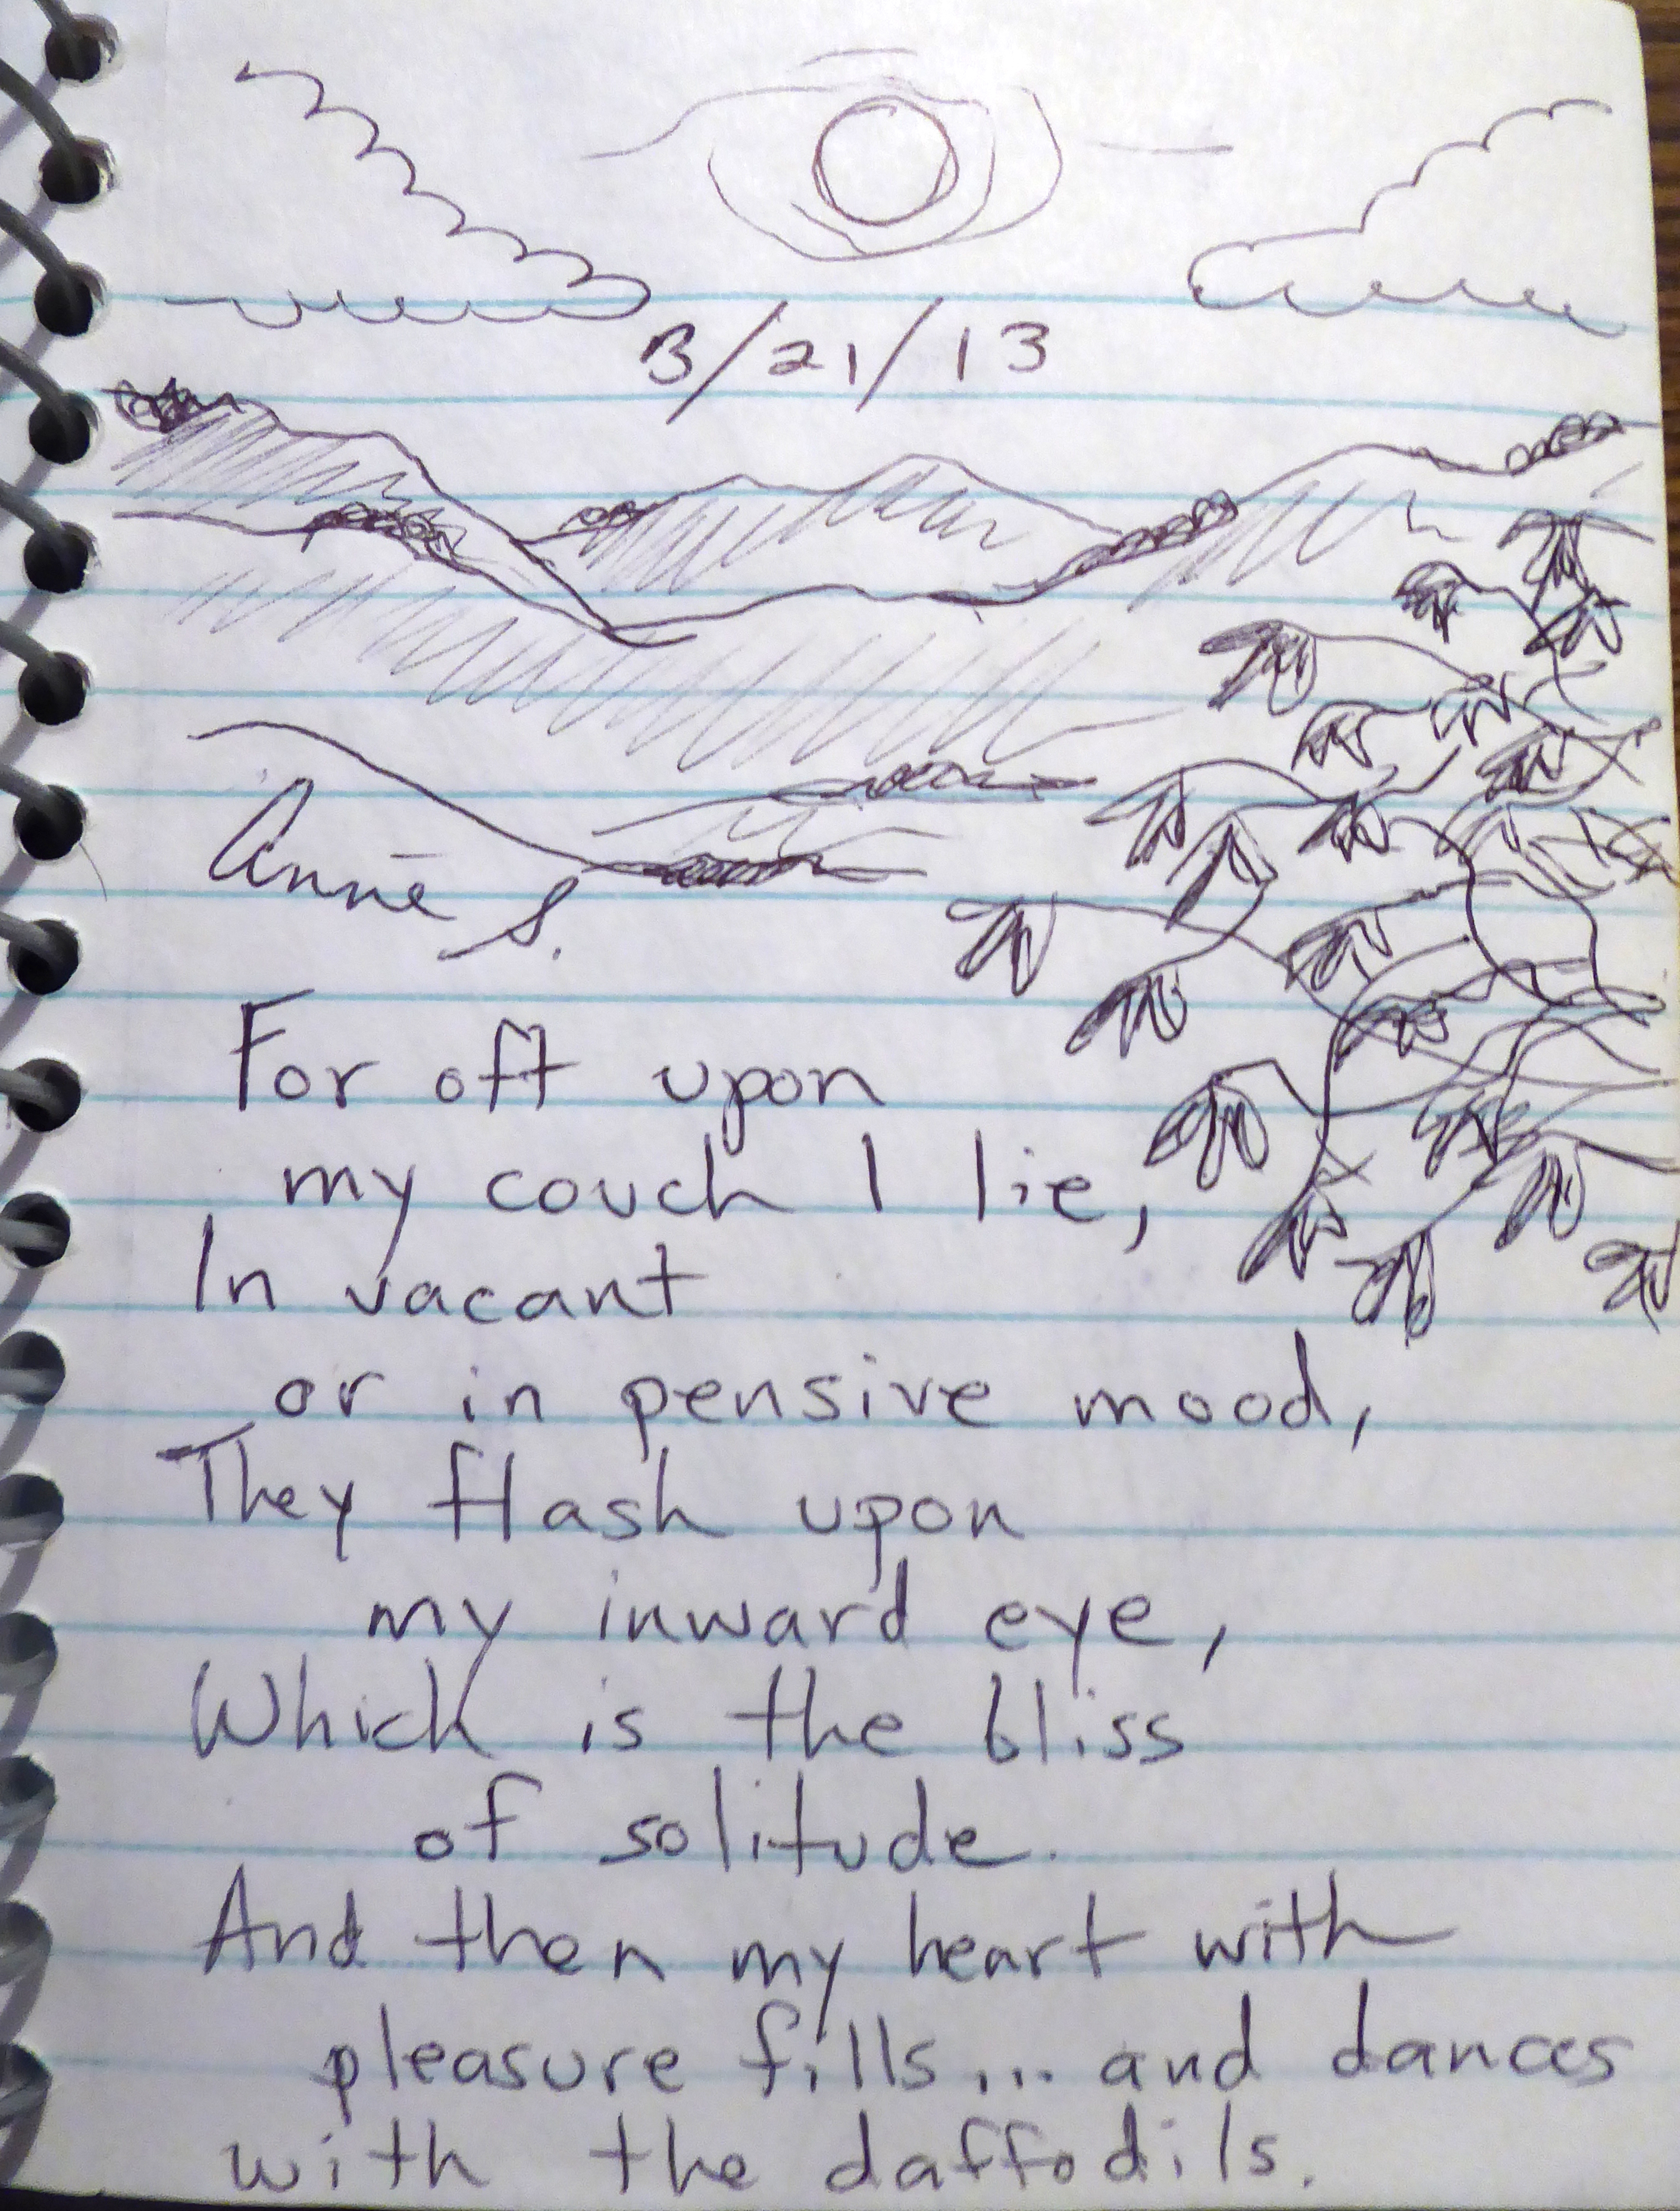 3/21/13
Anne S.
For oft upon
my couch I lie,
In vacant
or in pensive mood,
They flash upon
my inward eye,
Which is the bliss
of solitude.
And then my heart with
pleasure fills... and dances
with the daffodils.